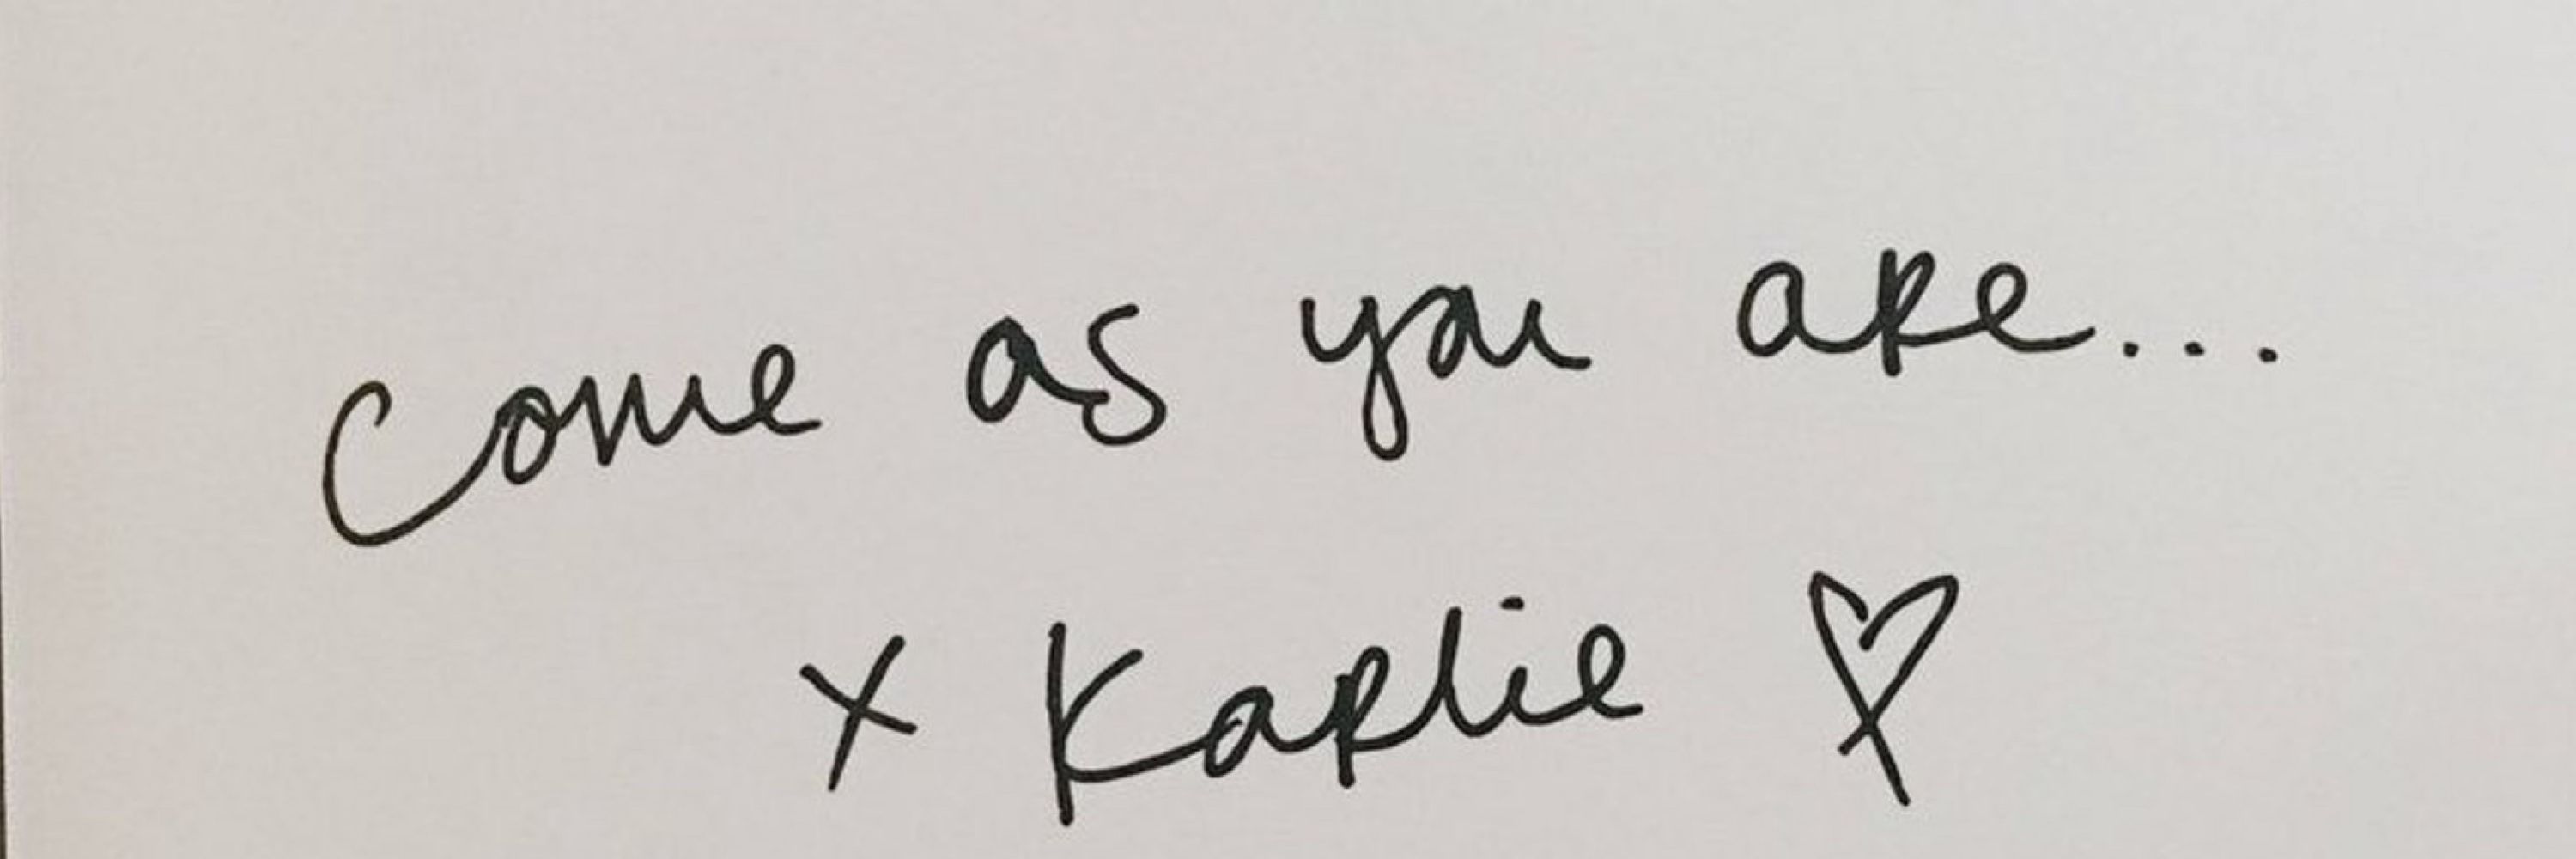 Come as you are...
x Karlie ♡